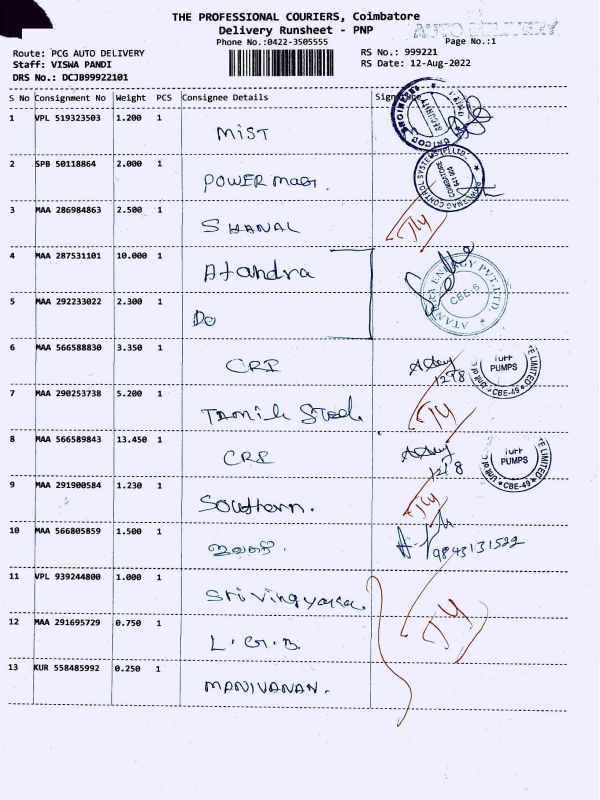 THE PROFESSIONAL COURIERS, Coimbatore
Delivery Runsheet - PNP
AUTO DELIVERY
Phone No.:0422-3505555
Page No.:1
Route: PCG AUTO DELIVERY
RS No.: 999221
Staff: VISWA PANDI
RS Date: 12-Aug-2022
DRS No.: DCJB99922101
S No Consignment No Weight PCS Consignee Details
1 VPL 519323503 1.200 1
MiST
SECURITY
2 SPB 50118864 2.000 1
POWER MAG.
COIMBATORE
3 MAA 286984863 2.500 1
SHANAL
4 MAA 287531101 10.000 1
Atandra
5 MAA 292233022 2.300 1
Do
ATANDRA ENERGY PVT.LTD.
CBE-6
6 MAA 566588830 3.350 1
CRI
1218
Unit of
PUMPS
LIMITED
CBE-49
7 MAA 290253738 5.200 1
Tamil Steel
8 MAA 566589843 13.450 1
CRI
1218
Unit of
PUMPS
LIMITED
CBE-49
9 MAA 291900584 1.230 1
Southern.
10 MAA 566805859 1.500 1
9843131522
11 VPL 939244800 1.000 1
Sri Vinayaka
12 MAA 291695729 0.750 1
L.G.B.
13 KUR 558485992 0.250 1
MANIVANAN.